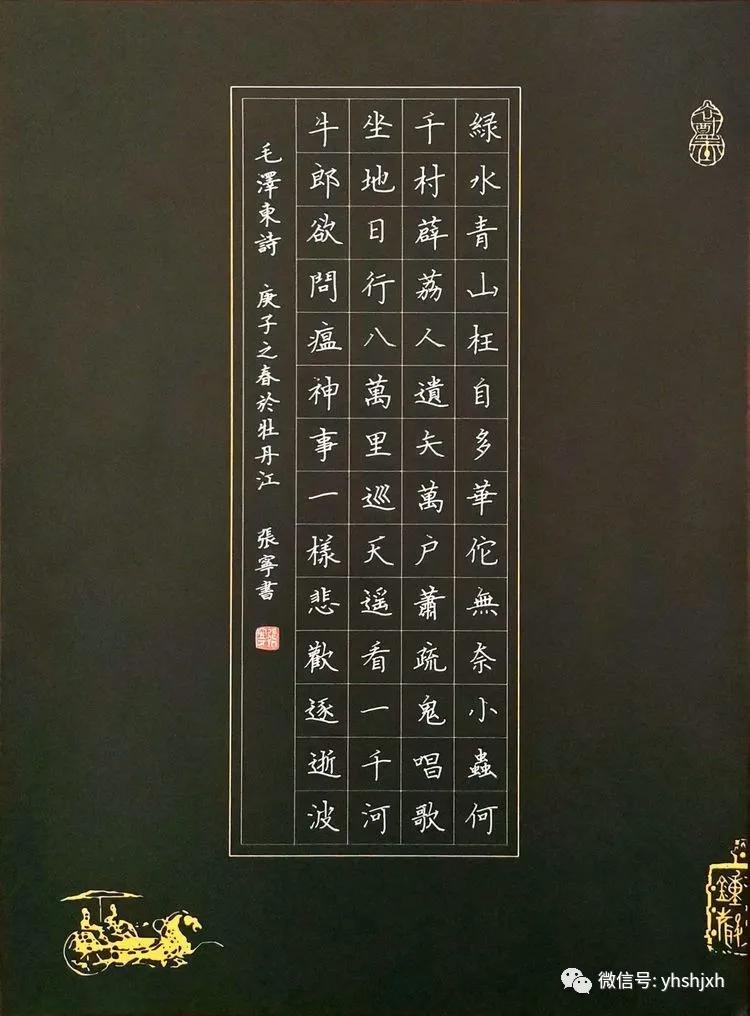 緑水青山枉自多華佗無奈小蟲何
千村薜荔人遺矢萬户蕭疏鬼唱歌
坐地日行八萬里巡天遥看一千河
牛郎欲問瘟神事一樣悲歡逐逝波
毛澤東詩 庚子之春於牡丹江 張寧書
微信号: yhshjxh